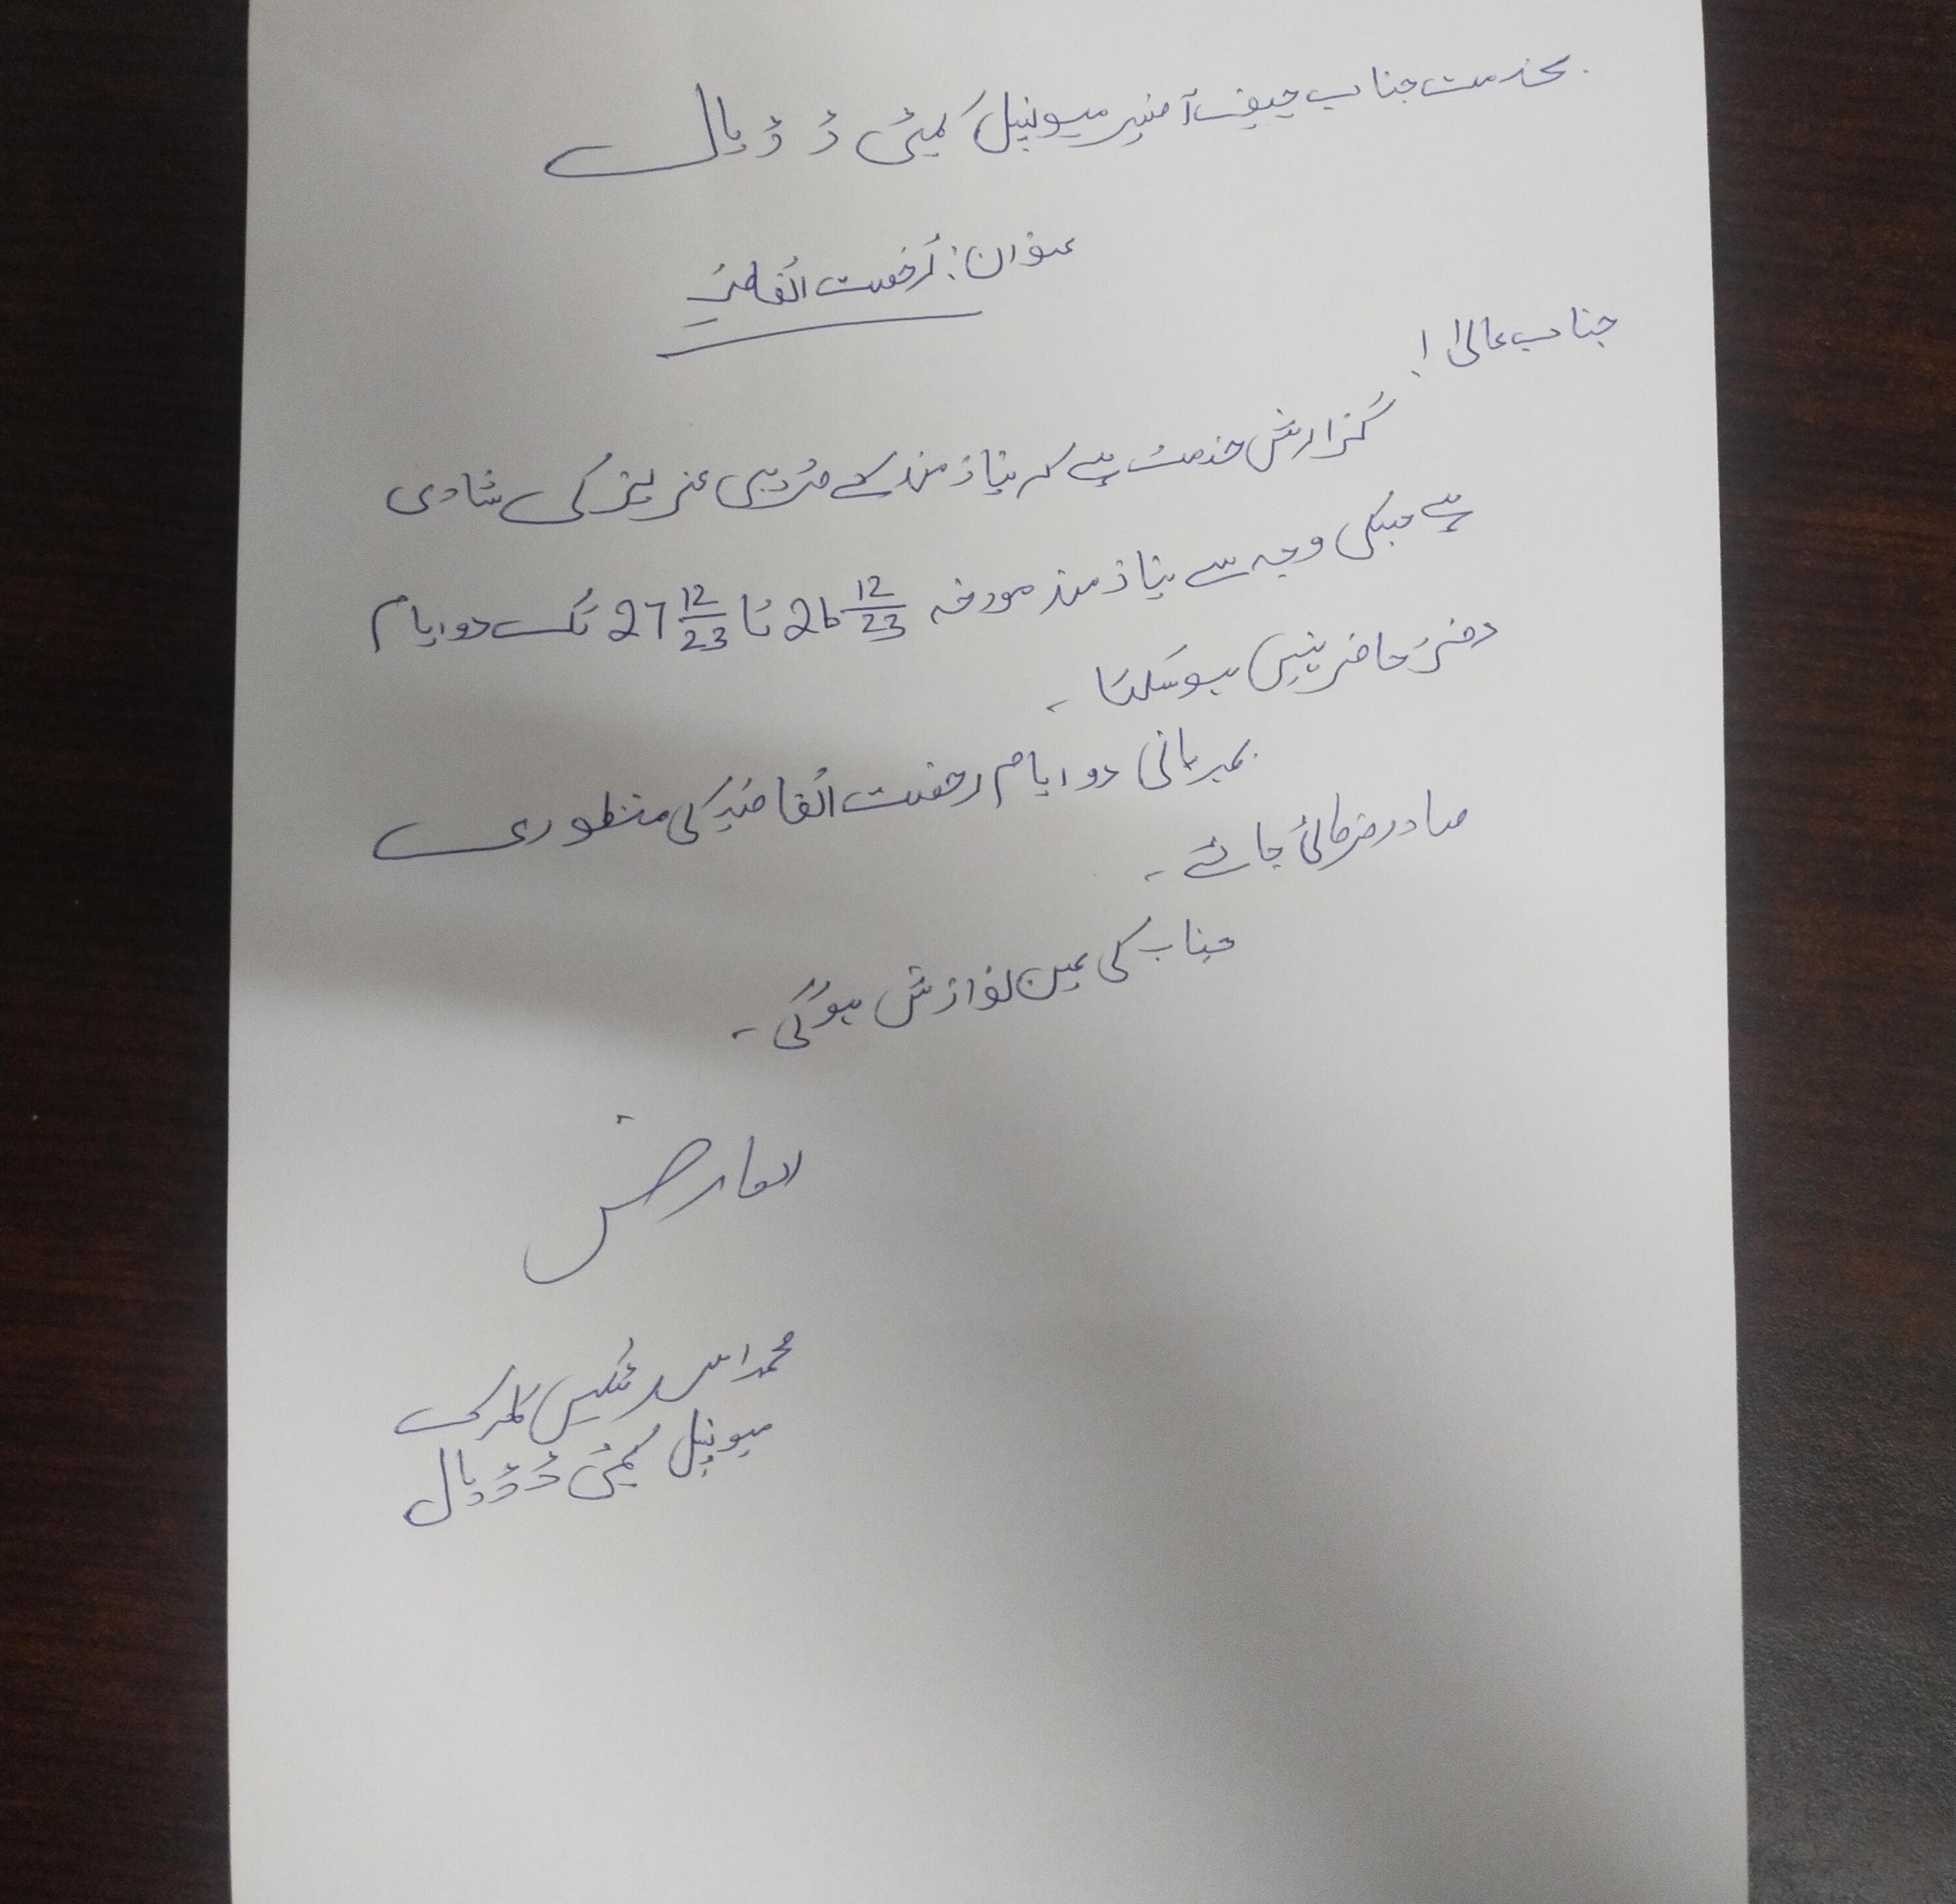 بخدمت جناب چیف آفیسر میونسپل کمیٹی ڈڈیال
عنوان: رخصت اتفاقیہ
جناب عالیٰ!
گزارش خدمت ہے کہ نیاز مند کے قریبی عزیز کی شادی
ہے جسکی وجہ سے نیاز مند مورخہ 26 12/23 تا 27 12/23 تک دو ایام
دفتر حاضر نہیں ہو سکتا ۔
بمہربانی دو ایام رخصت اتفاقیہ کی منظوری
صادر فرمائی جائے ۔
جناب کی عین نوازش ہوگی ۔
العارض
محمد اسد ٹیکس کلرک
میونسپل کمیٹی ڈڈیال